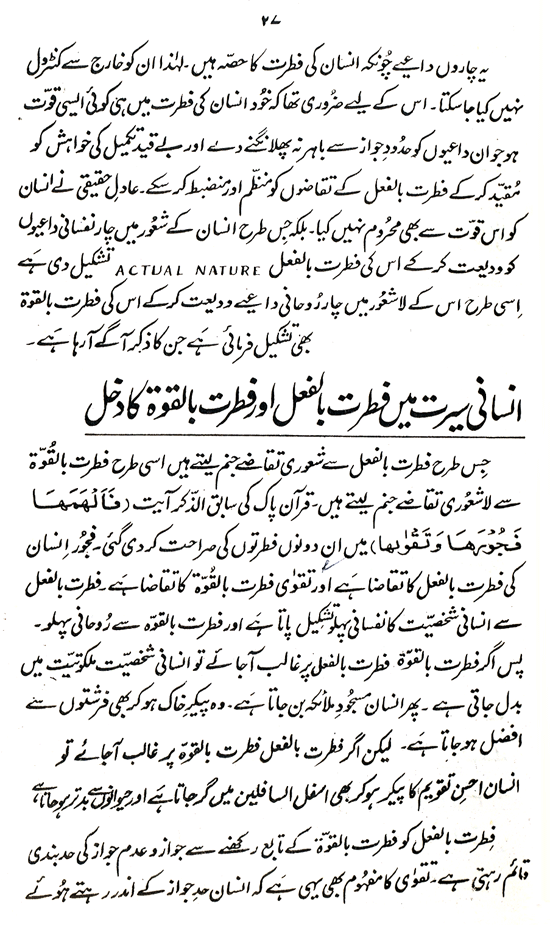 ۲۷
یہ چاروں داعیے چونکہ انسان کی فطرت کا حصہ ہیں۔ لہٰذا ان کو خارج سے کنٹرول
نہیں کیا جا سکتا۔ اس کے لیے ضروری تھا کہ خود انسان کی فطرت میں ہی کوئی ایسی قوت
ہو جو ان داعیوں کو حدودِ جواز سے باہر نہ پھلانگنے دے اور بے قید تکمیل کی خواہش کو
مُقید کر کے فطرت بالفعل کے تقاضوں کو منظم اور منضبط کر سکے۔ عادلِ حقیقی نے انسان
کو اس قوت سے بھی محروم نہیں کیا۔ بلکہ جس طرح انسان کے شعور میں چار نفسانی داعیوں
کو ودیعت کر کے اس کی فطرت بالفعل ACTUAL NATURE تشکیل دی ہے
اِسی طرح اس کے لاشعور میں چار رُوحانی داعیے ودیعت کر کے اس کی فطرت بالقوۃ
بھی تشکیل فرمائی ہے جن کا ذکر آگے آ رہا ہے۔
انسانی سیرت میں فطرت بالفعل اور فطرت بالقوۃ کا دخل
جس طرح فطرت بالفعل سے شعوری تقاضے جنم لیتے ہیں اسی طرح فطرت بالقُوّۃ
سے لاشعوری تقاضے جنم لیتے ہیں۔ قرآن پاک کی سابق الذکر آیت (فَاَلْھَمَھَا
فُجُوْرَھَا وَتَقْوٰىھَا) میں ان دونوں فطرتوں کی صراحت کر دی گئی۔ فجور انسان
کی فطرت بالفعل کا تقاضا ہے اور تقوٰی فطرت بالقُوّۃ کا تقاضا ہے۔ فطرت بالفعل
سے انسانی شخصیت کا نفسانی پہلو تشکیل پاتا ہے اور فطرت بالقوۃ سے رُوحانی پہلو۔
پس اگر فطرت بالقوۃ فطرت بالفعل پر غالب آ جائے تو انسانی شخصیت ملکوتیت میں
بدل جاتی ہے۔ پھر انسان مسجودِ ملائکہ بن جاتا ہے۔ وہ پیکرِ خاک ہو کر بھی فرشتوں سے
افضل ہو جاتا ہے۔ لیکن اگر فطرت بالفعل فطرت بالقوۃ پر غالب آ جائے تو
انسان احسنِ تقویم کا پیکر ہو کر بھی اسفل السافلین میں گر جاتا ہے اور حیوانوں سے بدتر ہو جاتا ہے
فطرت بالفعل کو فطرت بالقوۃ کے تابع رکھنے سے جواز و عدم جواز کی حد بندی
قائم رہتی ہے۔ تقوٰی کا مفہوم بھی یہی ہے کہ انسان حدِ جواز کے اندر رہتے ہُوئے